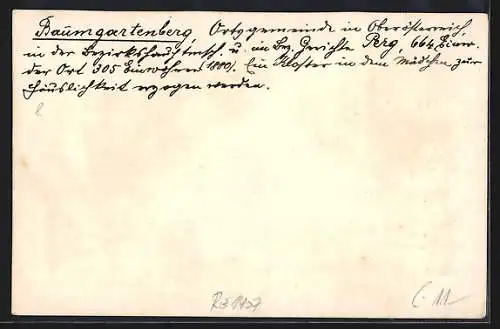 Baumgartenberg, Ortsgemeinde in Oberösterreich,
in der Bezirkshauptmsch. u. im Bez. Gerichte Perg, 664 Einw.
der Ort 305 Einwohner (1880). Ein Kloster in dem Mädchen zur
Häuslichkeit erzogen werden.